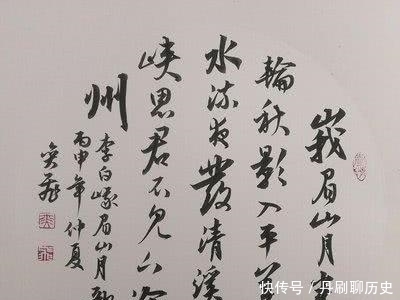 峩眉山月
輪秋影入平
水流夜發清溪
峽思君不見下
州
李白峨眉山月歌
丙申年仲夏
快传号/丹刷聊历史